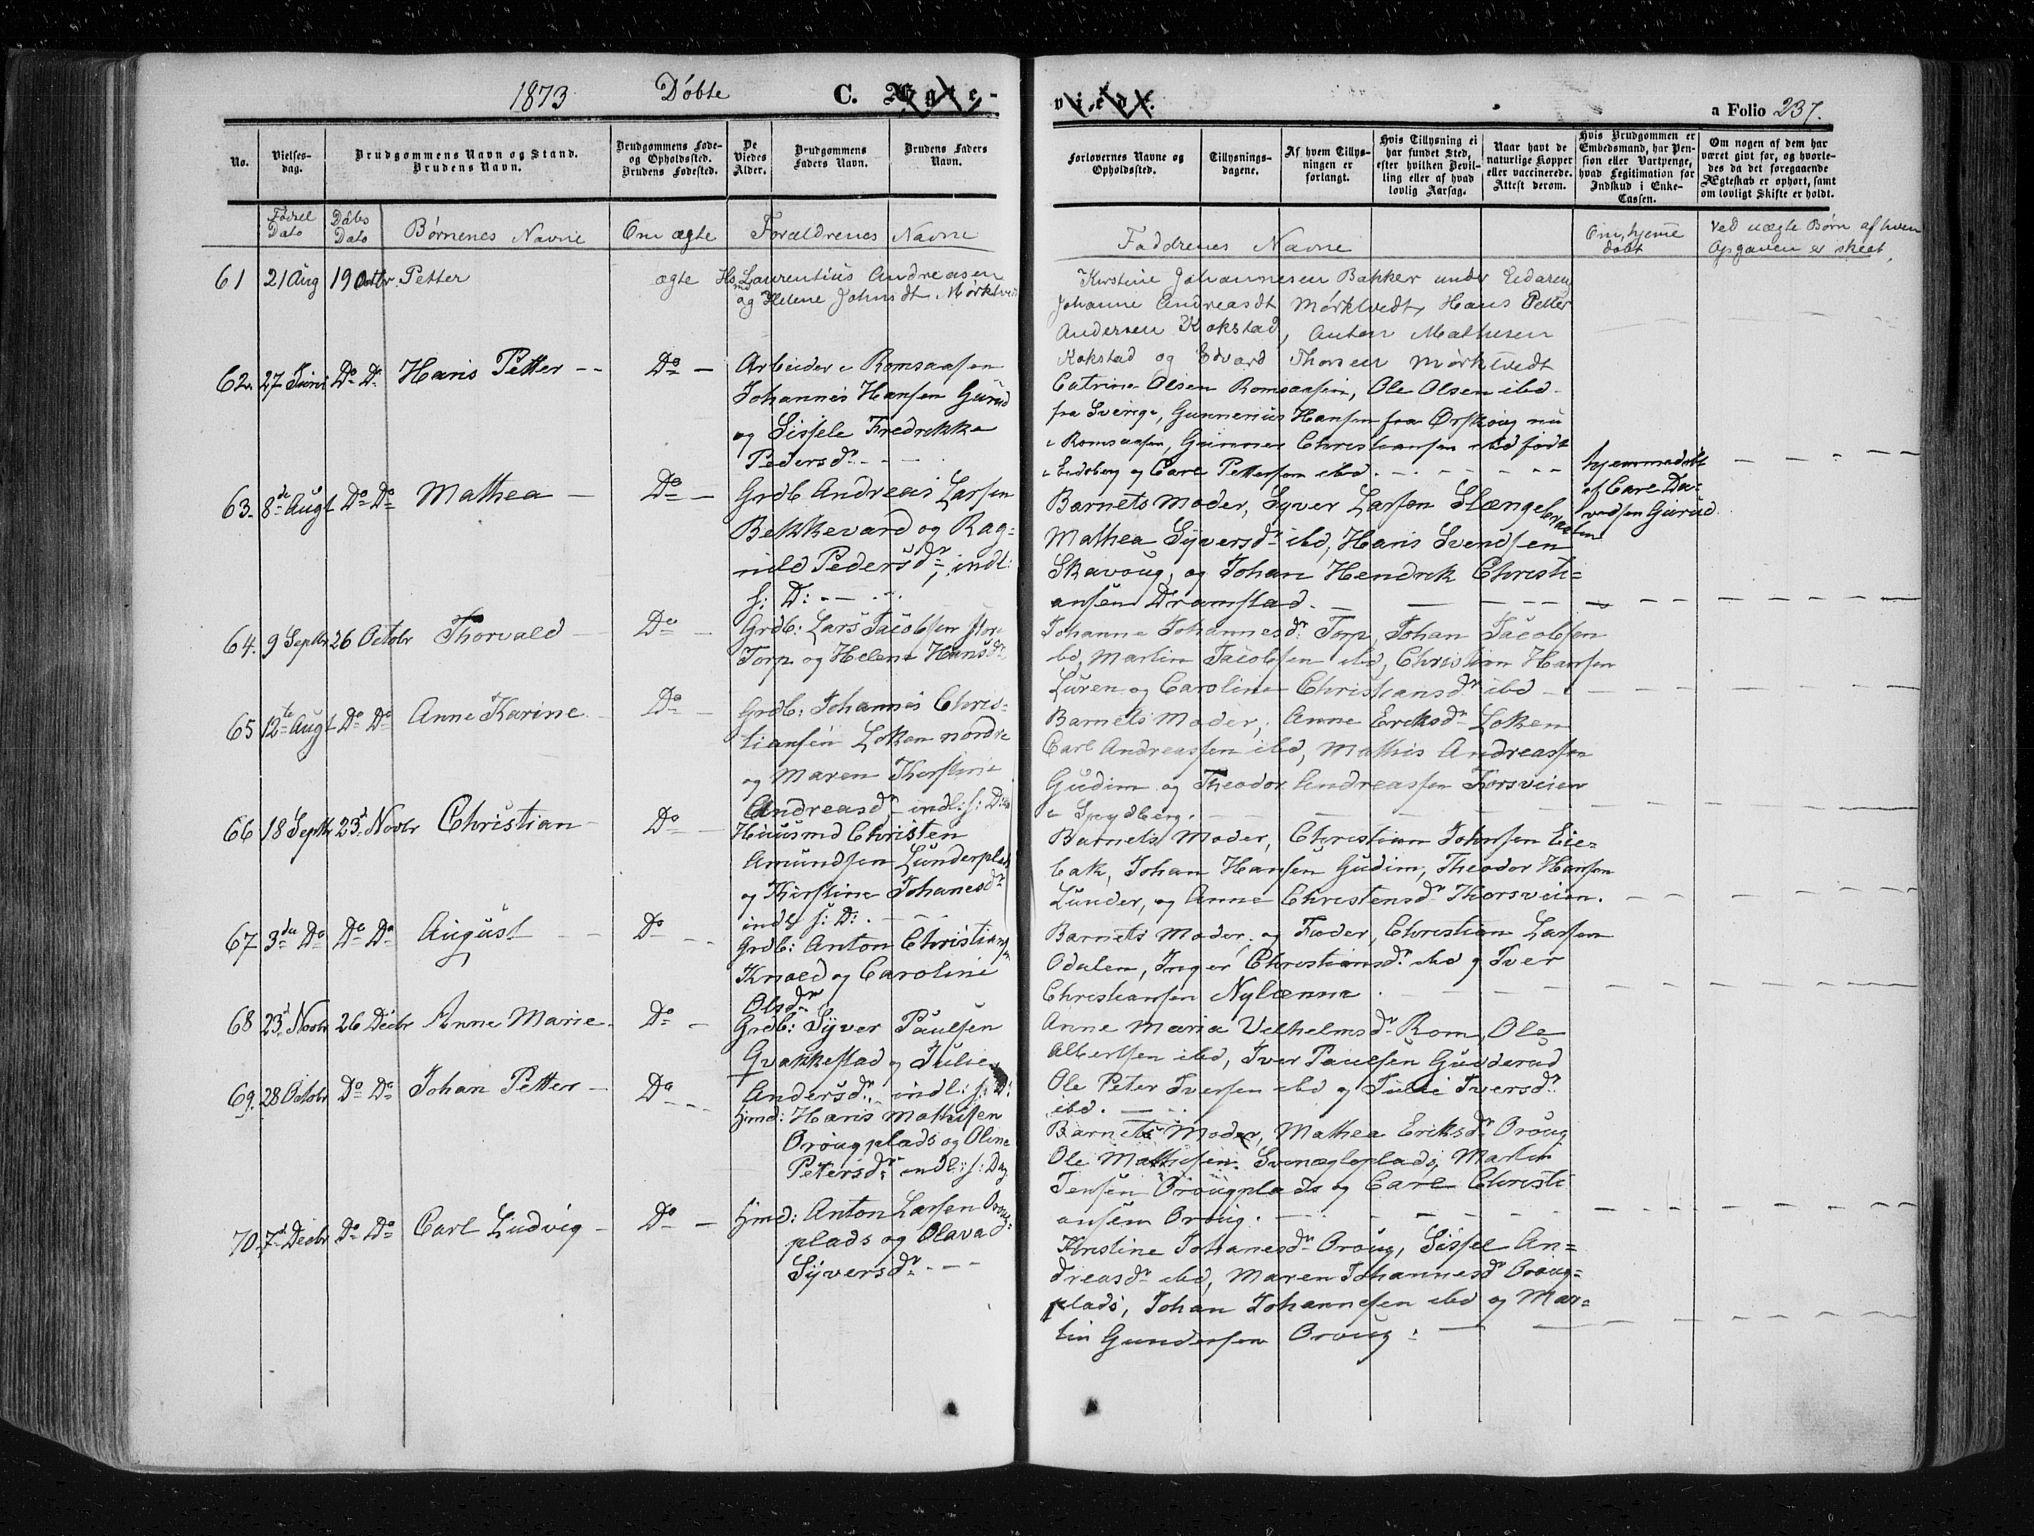 1873 Döbte C. Ægte-
viede.
a Folio 237.
No.
Vielses-
dag.
Brudgommens Navn og Stand.
Brudens Navn.
Brudgommens Føde-
og Opholdssted.
Brudens Fødested.
De
Viedes
Alder.
Brudgommens
Faders Navn.
Brudens Faders
Navn.
Forlovernes Navne og
Opholdssted.
Tillysnings-
dagene.
Af hvem Tillys-
ningen er
forlangt.
Hvis Tillysning ei
har fundet Sted,
efter hvilken Bevil-
ling eller af hvad
lovlig Aarsag.
Naar havt de
naturlige Kopper
eller vaccinerede.
Attest derom.
Hvis Brudgommen er
Embedsmand, har Pen-
sion eller Vartpenge,
hvad Legitimation for
Indskud i Enke-
Cassen.
Om nogen af dem har
været givt før, og hvorle-
des da det foregaaende
Ægteskab er ophørt, samt
om lovligt Skifte er holdt.
Födsel
Dato
Dåbs
Dato
Børnenes Navne
Om ægte
Forældrenes Navne
Faddrenes Navne
Om hjeme
döbt
Ved uægte Børn af hvem
Opgaven er skeet.
61 21 Aug 19 Octbr. Petter
ægte
Laurentius Andreasen
og Helene Johnsdt. Mörktvedt
Kirstine Johannesen Bakker under Eidareng
Johanne Andreasdt Mörktvedt, Hans Petter
Andersen Kokstad, Anton Mathisen
Kokstad og Edvard Thorsen Mörktvedt
62. 27 Juni Do Do Hans Petter --
Do —
Arbeider i Romsaasen
Johannes Hansen Gurud
og Sissele Fredrikke
Pedersdr. - -
Catrine Olsen Romsaasen, Ole Olsen ibd.
fra Sverige, Gunnerius Hansen fra Ørskoug nu
i Romsaasen, Gunner Christiansen ibd født
i Eidsberg og Carl Pettersen ibd. - - - -
63. 8de Augt Do Do Mathea —
Do —
Grdb Andreas Larsen
Bekkevard og Rag=
nild Pedersdr, indl:
s: D: — - -
Barnets Moder, Syver Larsen Slængebraaten
Mathea Syversdr ibd, Hans Svendsen
Skavoug, og Johan Hendrik Christi=
ansen Dramstad. —
hjemmedöbt
af Carl Da-
vidsen Gurud.
64. 9 Septbr 26 Octobr Thorvald —
Do —
Grdb: Lars Jacobsen store
Torp og Helene Hansdr
Johanne Johannesdr Torp, Johan Jacobsen
ibd, Martin Jacobsen ibd, Christian Hansen
Luren og Caroline Christiansdr ibd —
65 12te Augt Do Do Anne Karine
Do —
Grdb: Johannes Chris=
tiansen Løken nordre
og Maren Kirstine
Andreasdr, indl: s: D:
Barnets Moder, Anne Eriksdr Løken
Carl Andreassen ibd, Mathis Andreassen
Gudim og Theodor Andreassen Torsveien
i Spydberg. - -
66 18 Septbr 23d Novbr Christian —
Do —
Huusmd Christen
Amundsen Lunderplads
og Kirstine Johanesdr
indl s: D: - -
Barnets Moder, Christian Johnsen Eie=
bak, Johan Hansen Gudim, Theodor Hansen
Lunder, og Anne Christensdr Thorsveien.
67 3die Do Do Do August —
Do - -
Grdb: Anton Christians=
Knold og Caroline
Olsdr
Barnets Moder og Fader, Christian Larsen
Odalen, Inger Christiansdr ibd og Iver
Christiansen Nylænna. —
68 23d Novbr 26 Decbr Anne Marie —
Do —
Grdb: Syver Paulsen
Gvakkestad og Julie
Andersdr, indl: s: D:
Anne Maria Vilhelmsdr Rom, Ole
Albertsen ibd, Iver Paulsen Gudderud
Ole Peter Iversen ibd og Julie Iversdr
ibd. —
69. 28 Octobr Do Do Johan Petter —
Do - -
Hmd: Hans Mathisen
Oroug plads og Oline
Petersdr indl: s: Dag
Barnets Moder, Mathea Eriksdr Oroug
Ole Mathisen Svenæbplads, Martin
Jensen Orougplads og Carl Christi
ansen Oroug. —
70. 7d Decbr Do Do Carl Ludvig —
Do —
Hmd: Anton Larsen Oroug=
plads og Olava
Syversdr - - -
Kristine Johanesdr Oroug, Sissel An=
dreasdr ibd, Maren Johannesdr Oroug=
plads, Johan Johannesen ibd og Mar=
tin Gundersen Oroug. —